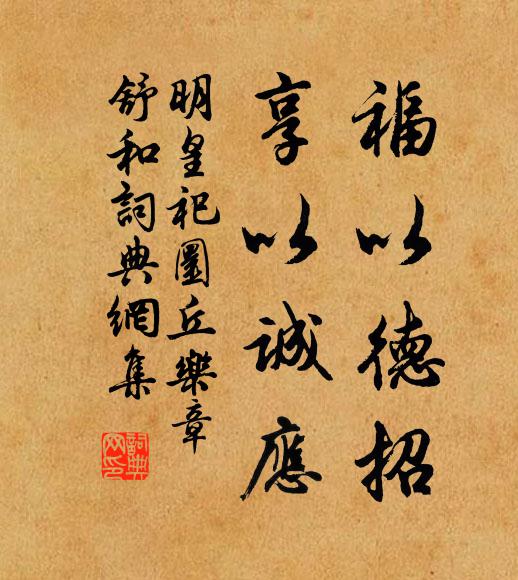 福以德招
享以誠應
明皇祀圜丘樂章
舒和詞典網集
詞典網印